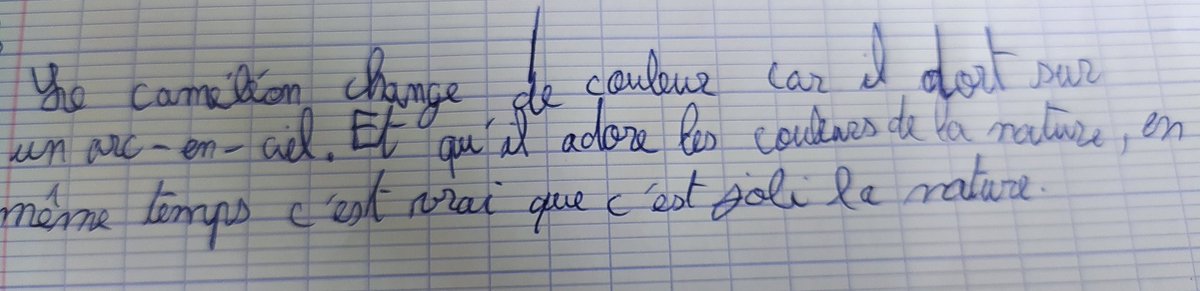 Le caméléon change de couleur car il dort sur
un arc-en-ciel. Et qu'il adore les couleurs de la nature, en
même temps c'est vrai que c'est joli la nature.